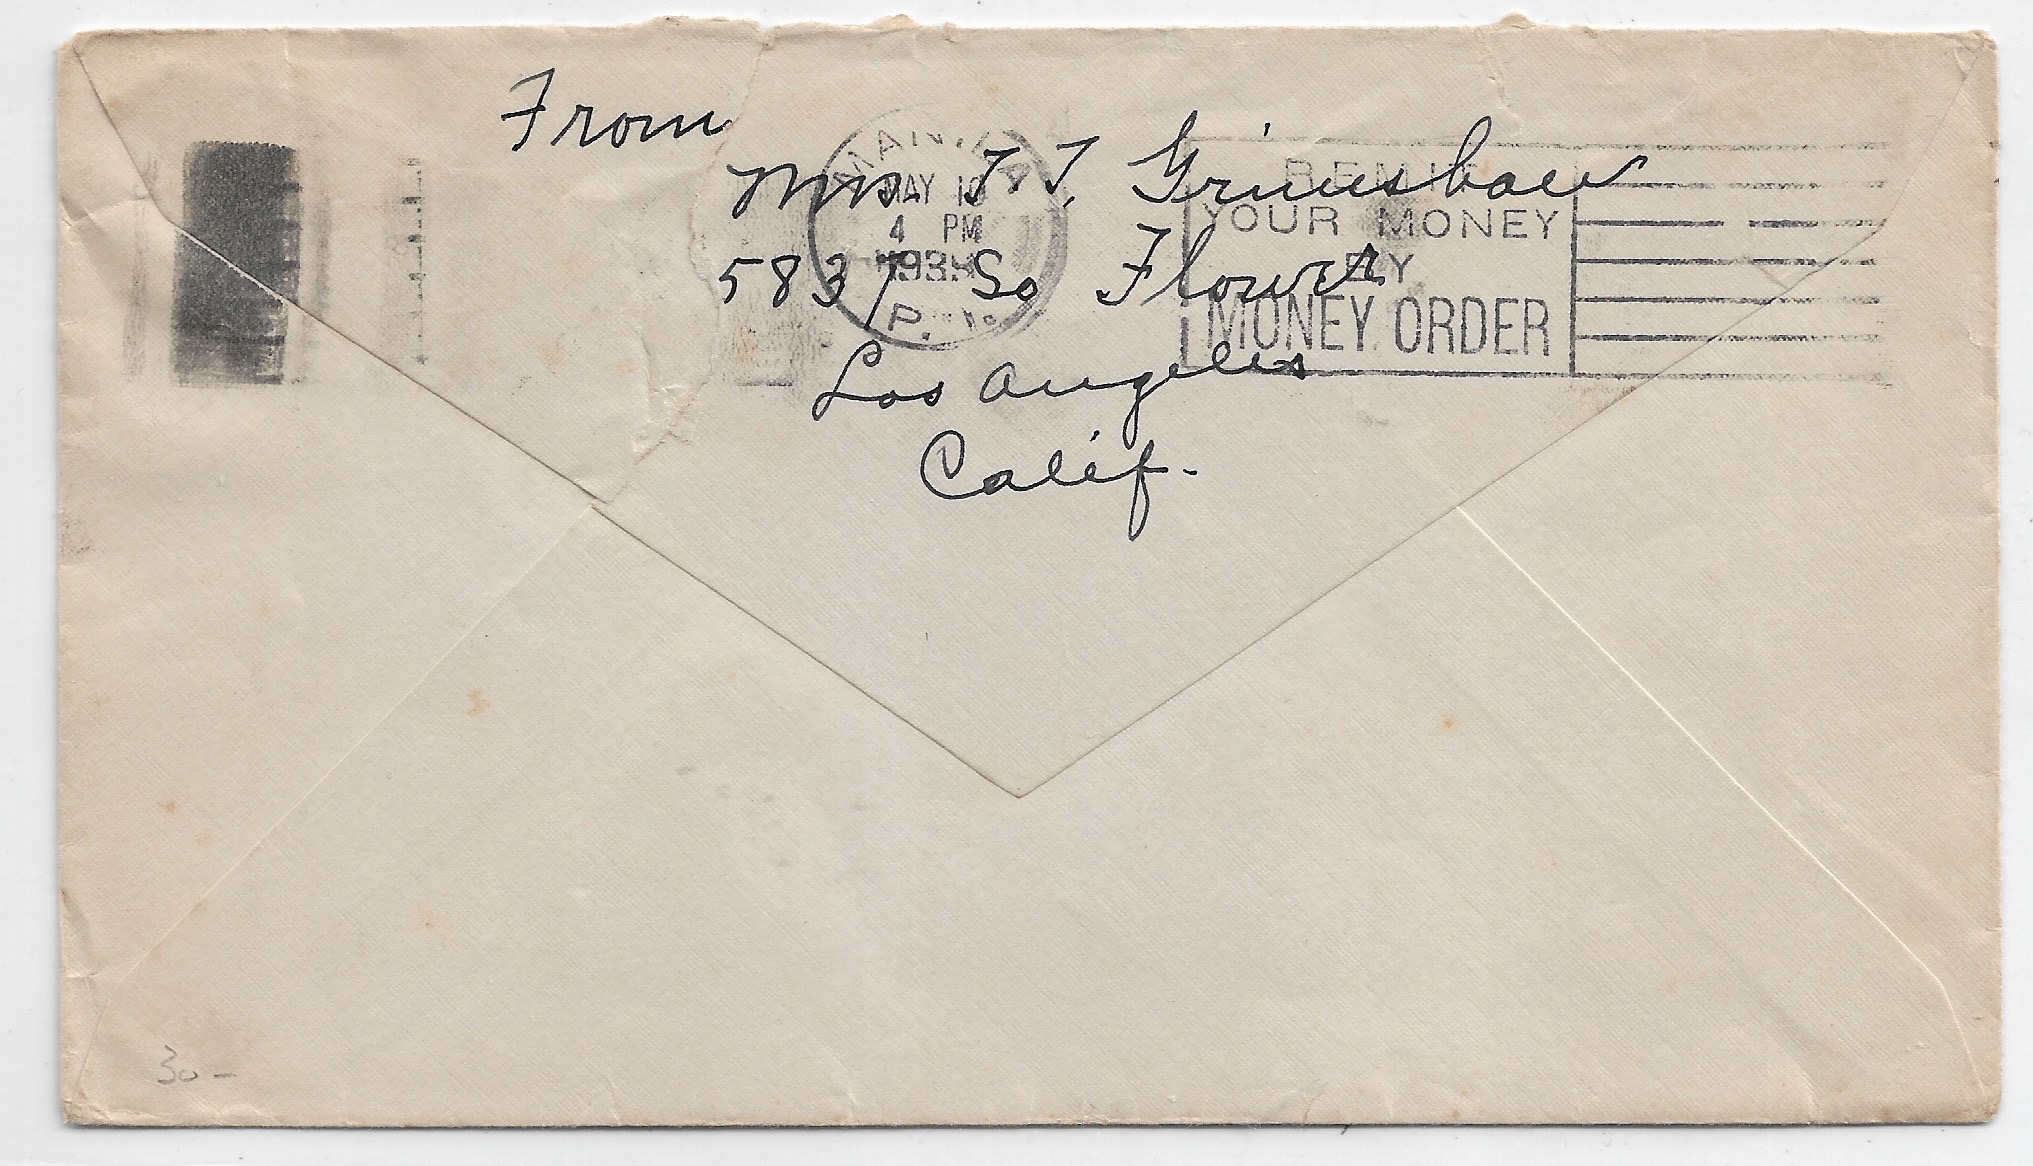 From
Mrs T. T. Grimshaw
5837 So Flower
Los Angeles
Calif.
MANILA
MAY 18
4 PM
P. I.
REMIT
YOUR MONEY
BY
MONEY ORDER
30-